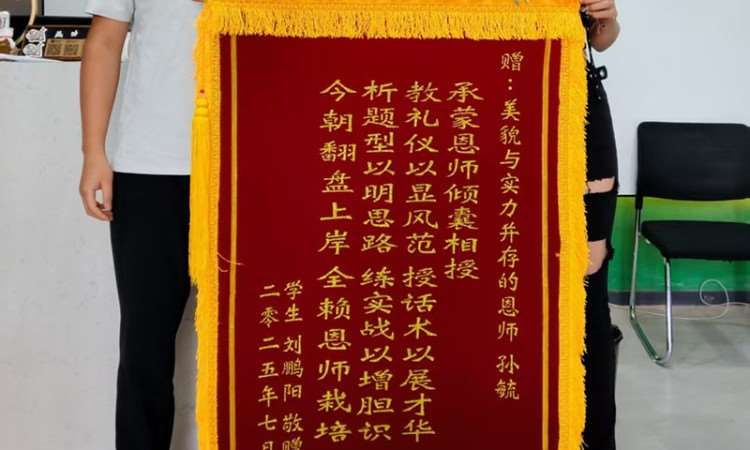 赠：美貌与实力并存的恩师 孙毓
承蒙恩师倾囊相授
教礼仪以显风范 授话术以展才华
析题型以明思路 练实战以增胆识
今朝翻盘上岸 全赖恩师栽培
学生 刘鹏阳 敬赠
二零二五年七月